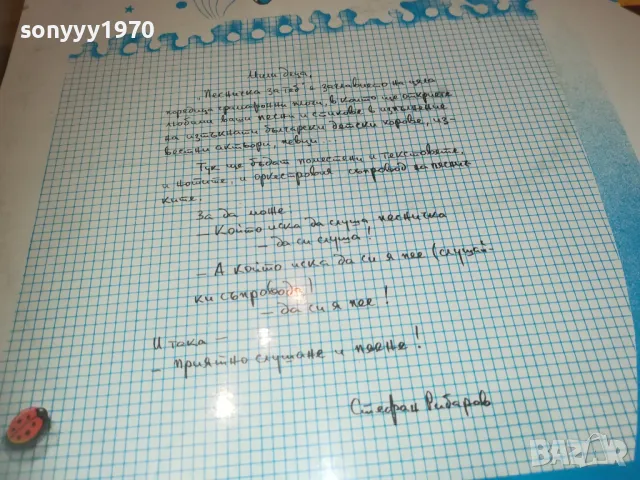 sonyyy1970
Мили деца,
"Песничка за теб" е заглавието на цяла
поредица грамофонни плочи, в които ще откриете
любими ваши песни и стихове в изпълнение
на изтъкнати български детски хорове, из-
вестни актьори, певци...
Тук ще бъдат поместени и текстовете,
и нотите, и оркестровия съпровод на песнич-
ките.
За да може
- Който иска да слуша песничка
- да си слуша!
- А който иска да си я пее (слушай-
ки съпровода)
- да си я пее!
И така -
- приятно слушане и пеене!
Стефан Рибаров
BAZAR